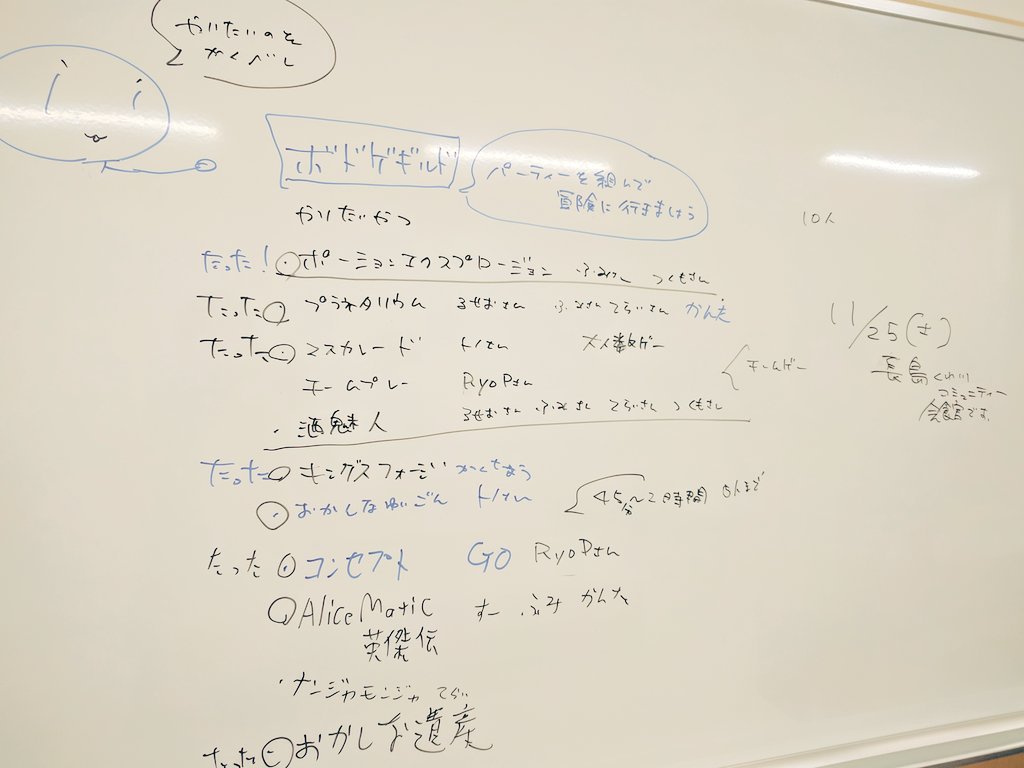 やりたいのを
かくべし
ボドゲギルド
パーティーを組んで
冒険に行きましょう
やりたいやつ
10人
たった! ポーションエクスプロージョン ふみさん つくもさん
たった プラネタリウム るせおさん ふみさん てらいさん かんた
11/25(土)
たった マスカレード トノさん 大人数ゲー
チームプレー RyoPさん
チームゲー
長島くわ川
コミュニティー
会館です
・酒魅人 るせおさん ふみさん てらいさん つくもさん
たった キングスフォージ かくちょう
おかしなゆいごん トノさん
45分~2時間 6人まで
たった コンセプト GO RyoPさん
Alice Matic すー ふみ かんた
英傑伝
・ナンジャモンジャ てらい
たった おかしな遺産